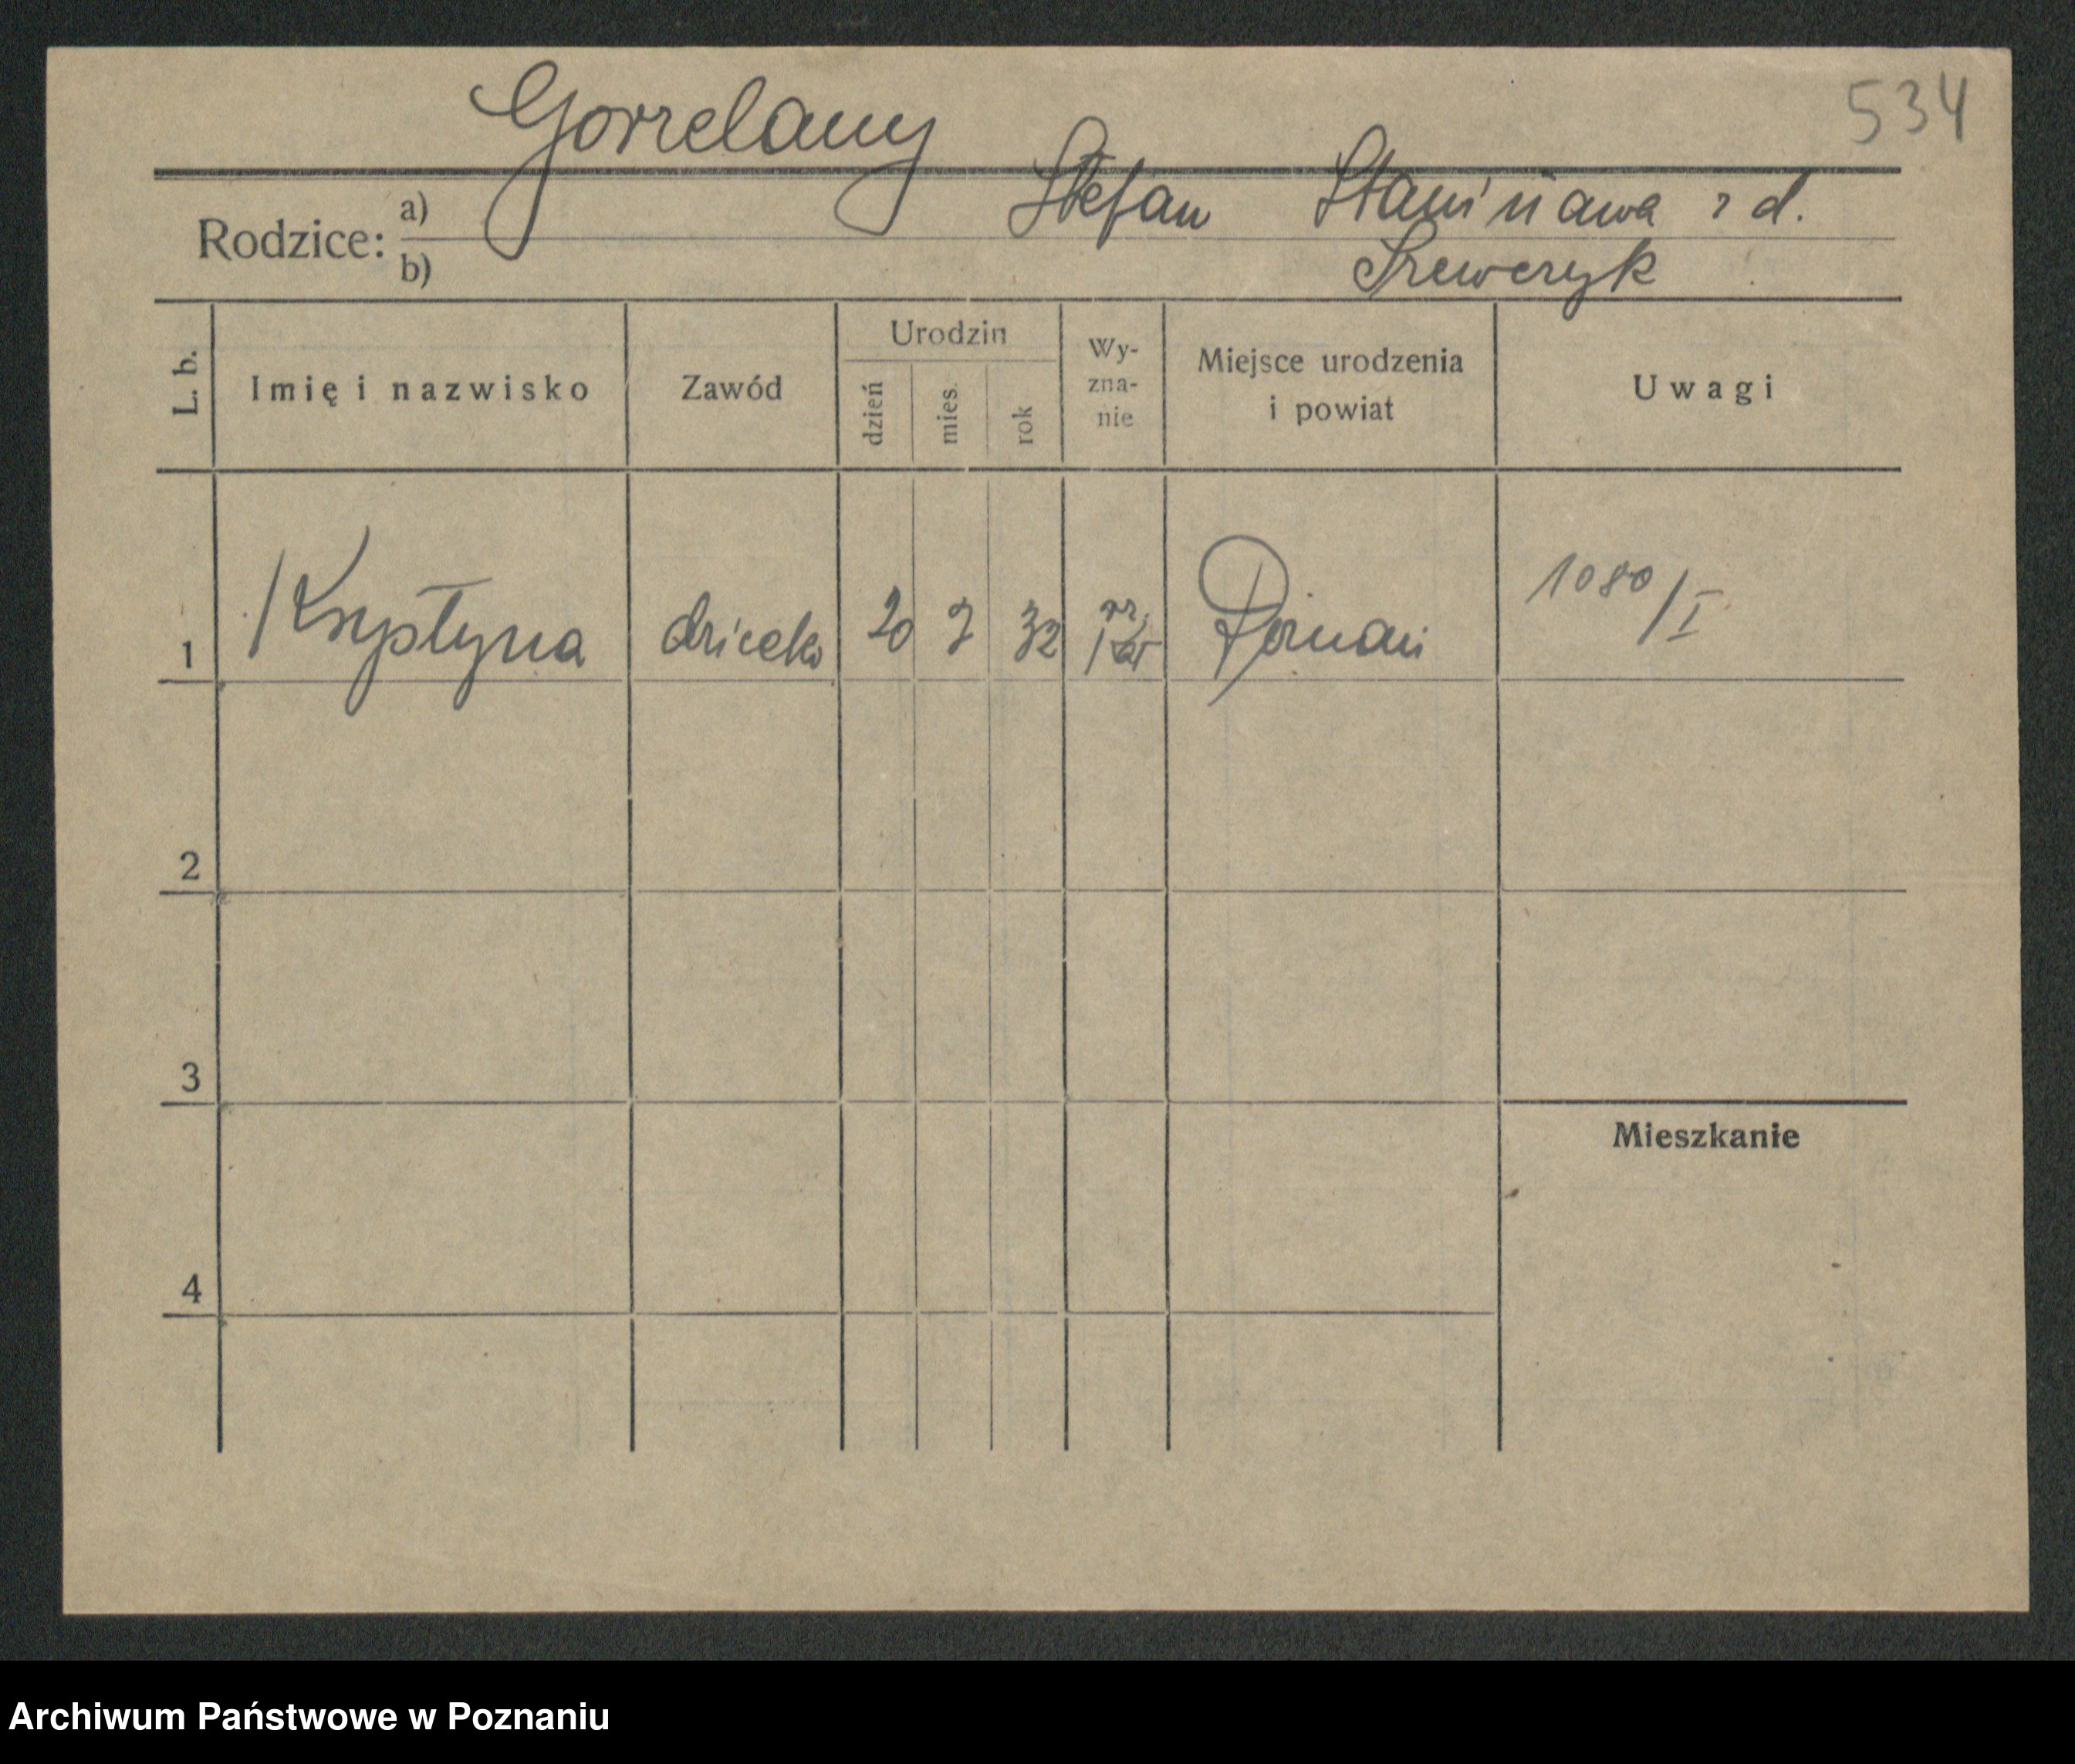 534
Gorzelany
Stefan Stanisława z d.
Rodzice: a)
b) Szewczyk
L. b. Imię i nazwisko Zawód Urodzin dzień mies. rok Wy-zna-nie Miejsce urodzenia i powiat Uwagi
1 Krystyna dziecko 20 7 32 rz. kat Poznań 1080/I
2
3
Mieszkanie
4
Archiwum Państwowe w Poznaniu